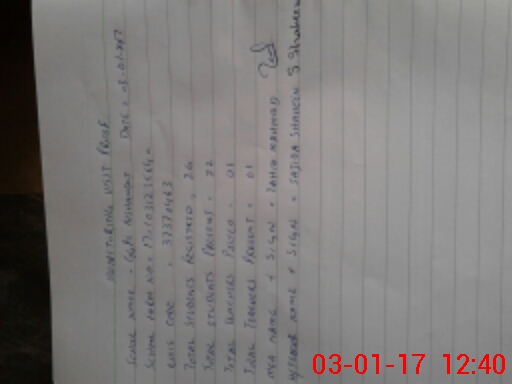 MONITORING VISIT PROOF
SCHOOL NAME = GGPS DATE = 03.01.2017
SCHOOL FORM NO =
EMIS CODE = 37371463
TOTAL STUDENTS REGISTERED = 26
TOTAL STUDENTS PRESENT = 22
TOTAL TEACHERS POSTED = 01
TOTAL TEACHERS PRESENT = 01
MEA NAME + SIGN = TAHIR MAHMOOD
NAME + SIGN = SAJIDA SHAHEEN S Shaheen
03-01-17 12:40